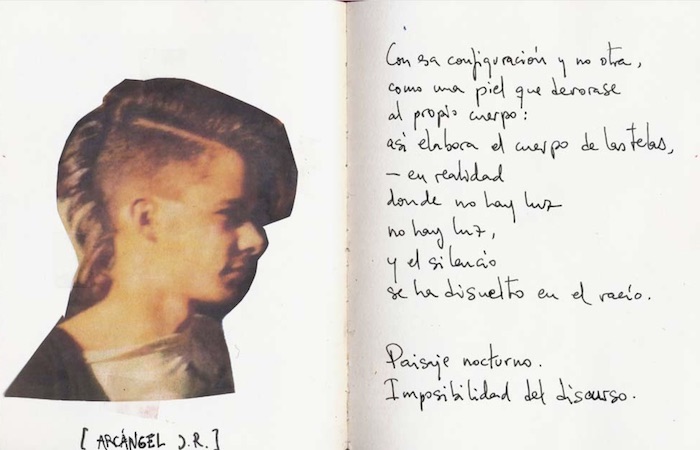 [ ARCÁNGEL J.R.]
Con esa configuración y no otra,
como una piel que devorase
al propio cuerpo:
así elabora el cuerpo de las telas,
— en realidad
donde no hay luz
no hay luz,
y el silencio
se ha disuelto en el vacío.
Paisaje nocturno.
Imposibilidad del discurso.